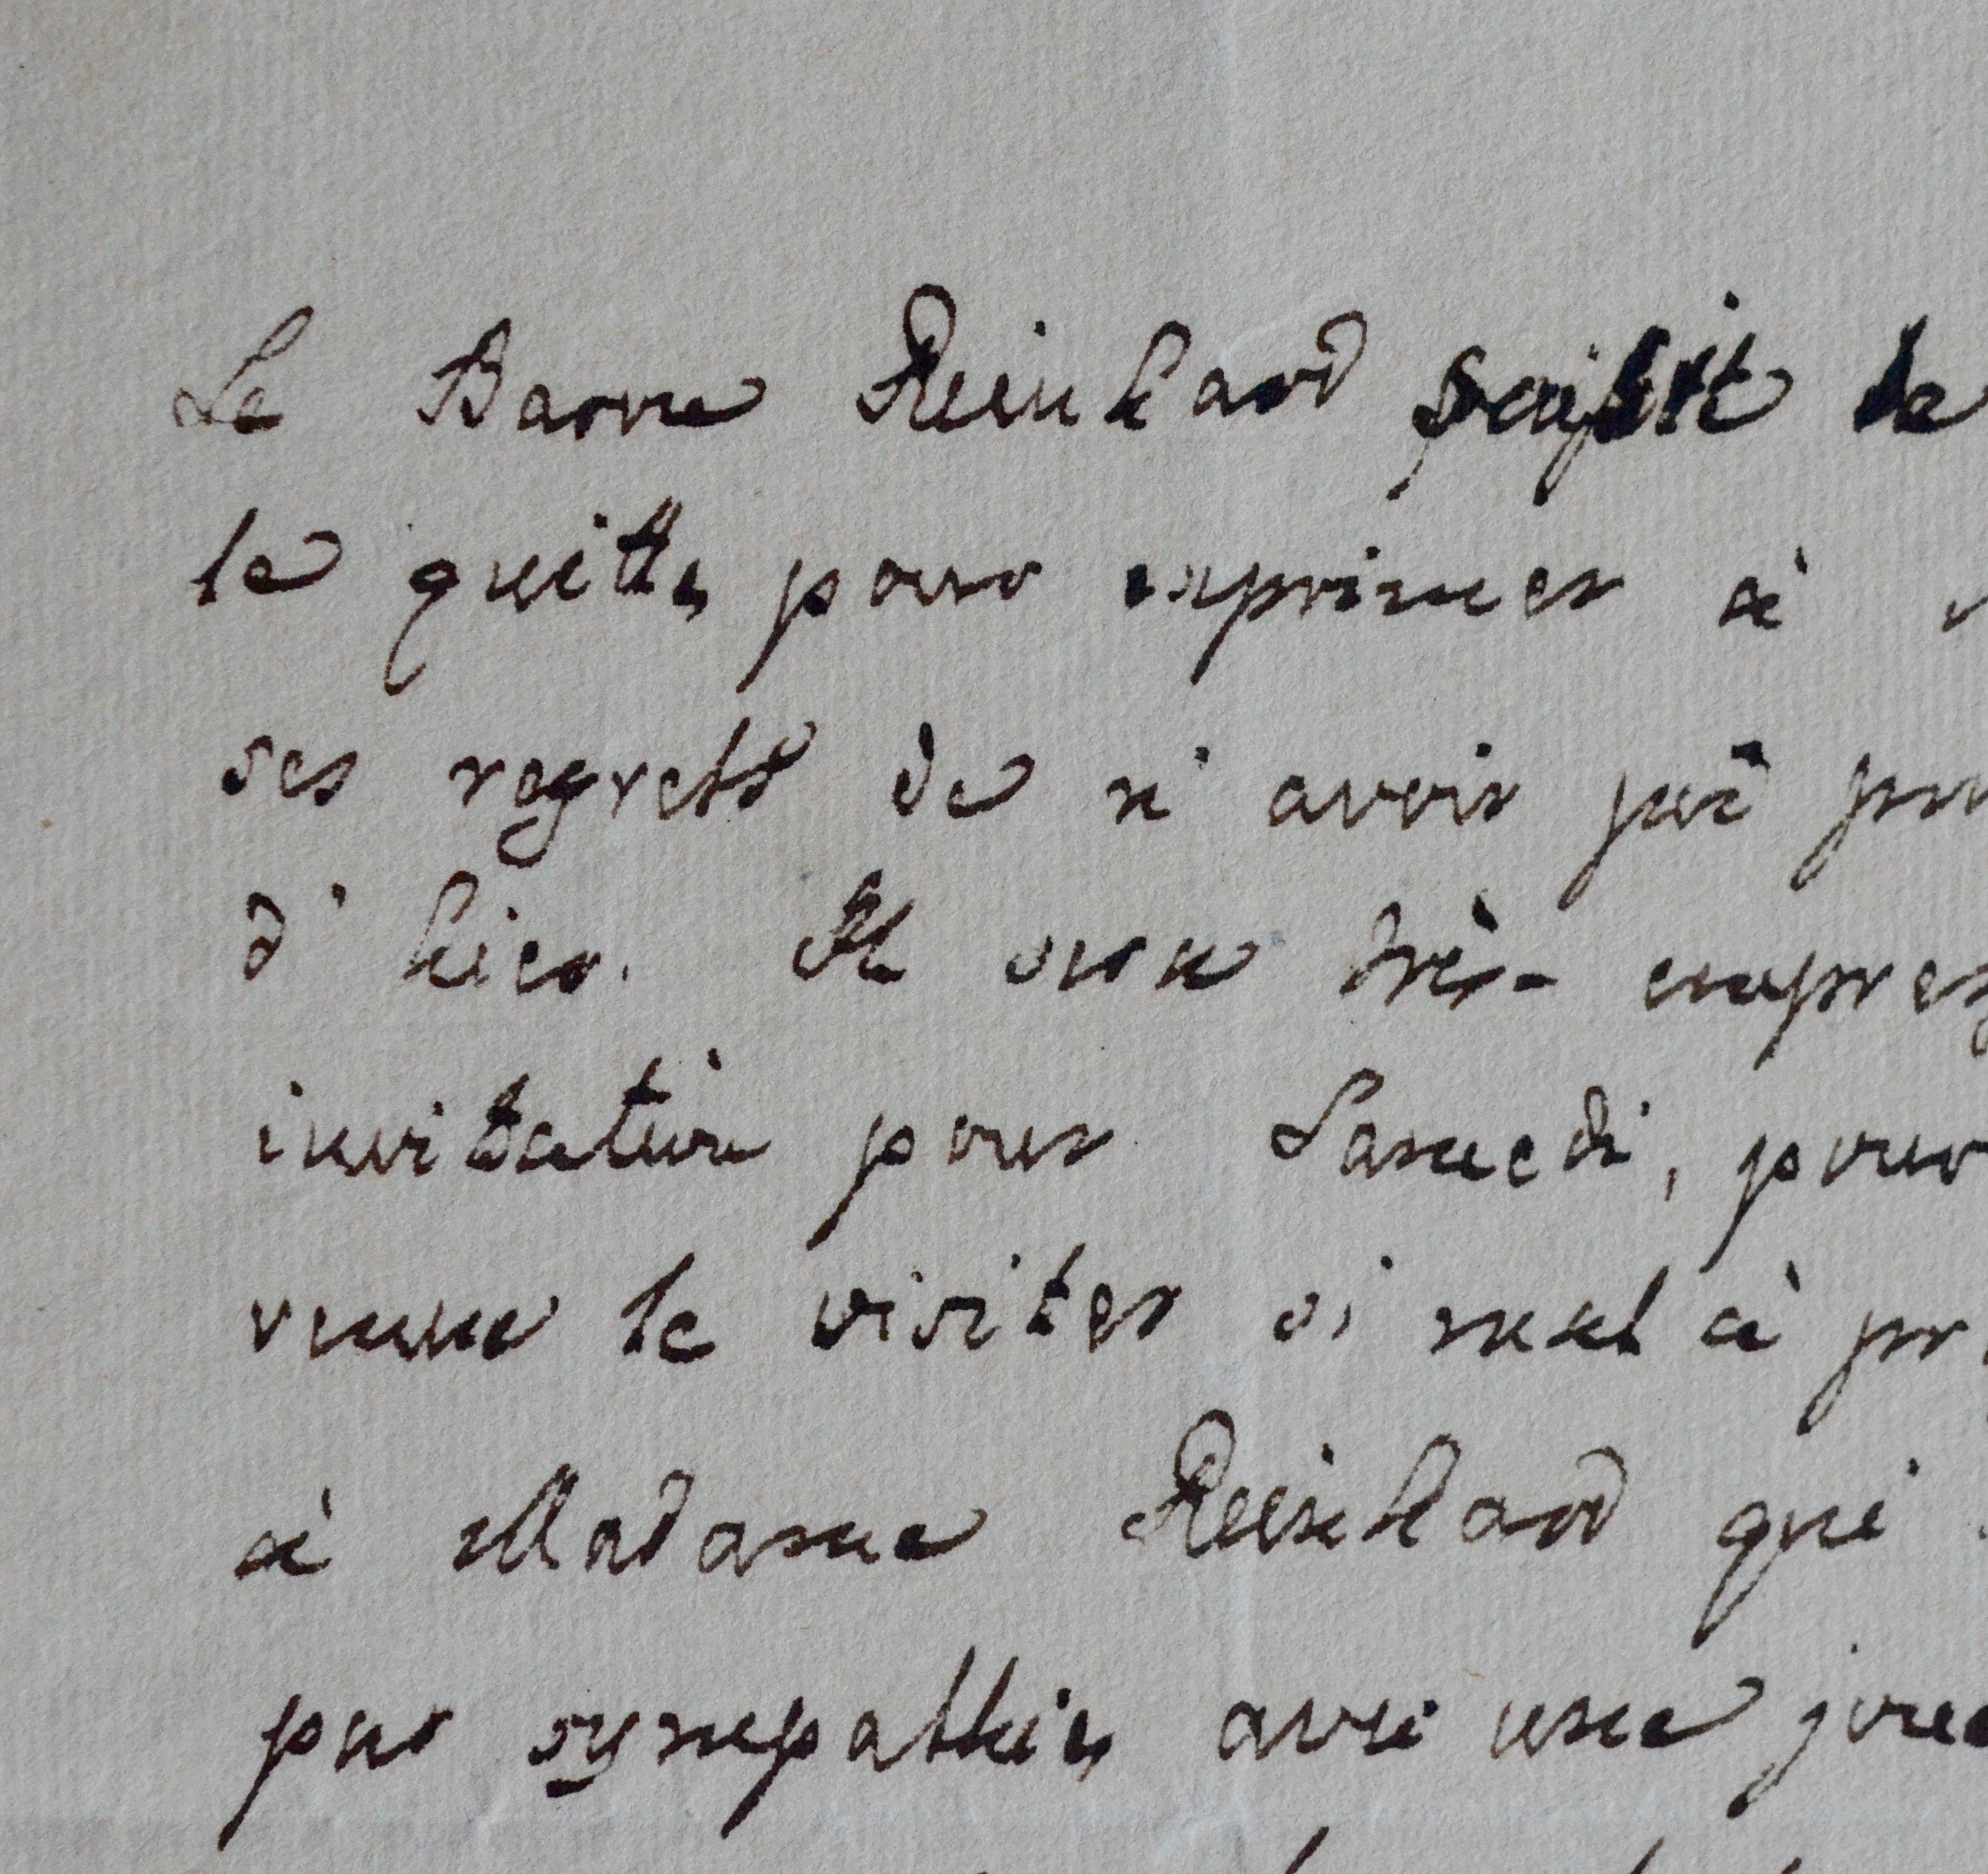 Le Baron Reinhard saisit le
le quitte, pour exprimer à
ses regrets de n'avoir pû
d'hier. Il sera très-
invitation pour Samedi, pour
venue le visiter si mal à
à Madame Reinhard qui
par sympathie, avoit une